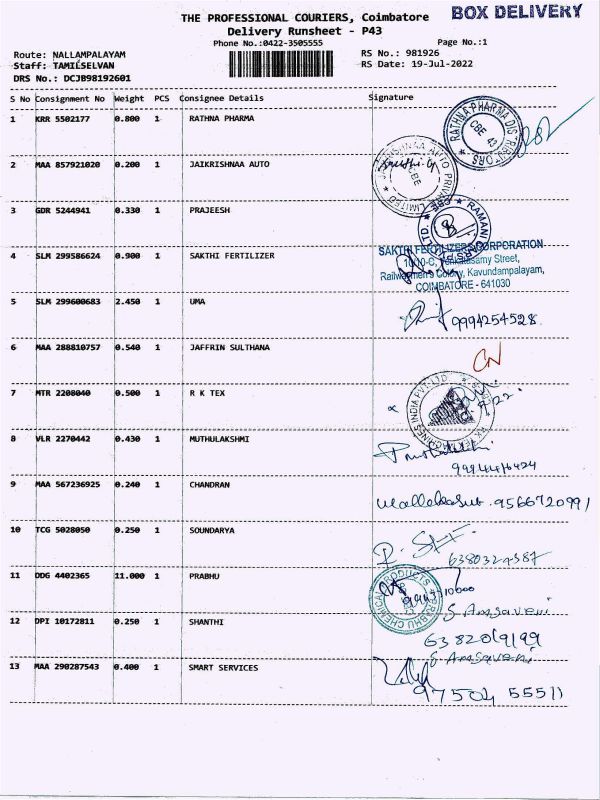 THE PROFESSIONAL COURIERS, Coimbatore
BOX DELIVERY
Delivery Runsheet - P43
Phone No.:0422-3505555
Page No.:1
Route: NALLAMPALAYAM
RS No.: 981926
Staff: TAMILSELVAN
RS Date: 19-Jul-2022
DRS No.: DCJB98192601
S No Consignment No Weight PCS Consignee Details Signature
1 KRR 5502177 0.800 1 RATHNA PHARMA
RATHNA PHARMA DISTRIBUTORS
CBE 43
2 MAA 857921020 0.200 1 JAIKRISHNAA AUTO
JAIKRISHNAA AUTO PRIVATE LIMITED
CBE
3 GDR 5244941 0.330 1 PRAJEESH
RAMANI CARS LTD.
4 SLM 299586624 0.900 1 SAKTHI FERTILIZER
SAKTHI FERTILIZERS CORPORATION
Street,
Railwaymen's Colony, Kavundampalayam,
COIMBATORE - 641030
5 SLM 299600683 2.450 1 UMA
9994254528
6 MAA 288810757 0.540 1 JAFFRIN SULTHANA
CN
7 MTR 2208040 0.500 1 R K TEX
INDIA PVT. LTD.
8 VLR 2270442 0.430 1 MUTHULAKSHMI
9 MAA 567236925 0.240 1 CHANDRAN
9566720991
10 TCG 5028050 0.250 1 SOUNDARYA
6380324387
11 DDG 4402365 11.000 1 PRABHU
PRABHU CHEMICAL PRODUCTS
S. Amsaveni
12 DPI 10172811 0.250 1 SHANTHI
S. Amsaveni
13 MAA 290287543 0.400 1 SMART SERVICES
97504 55511